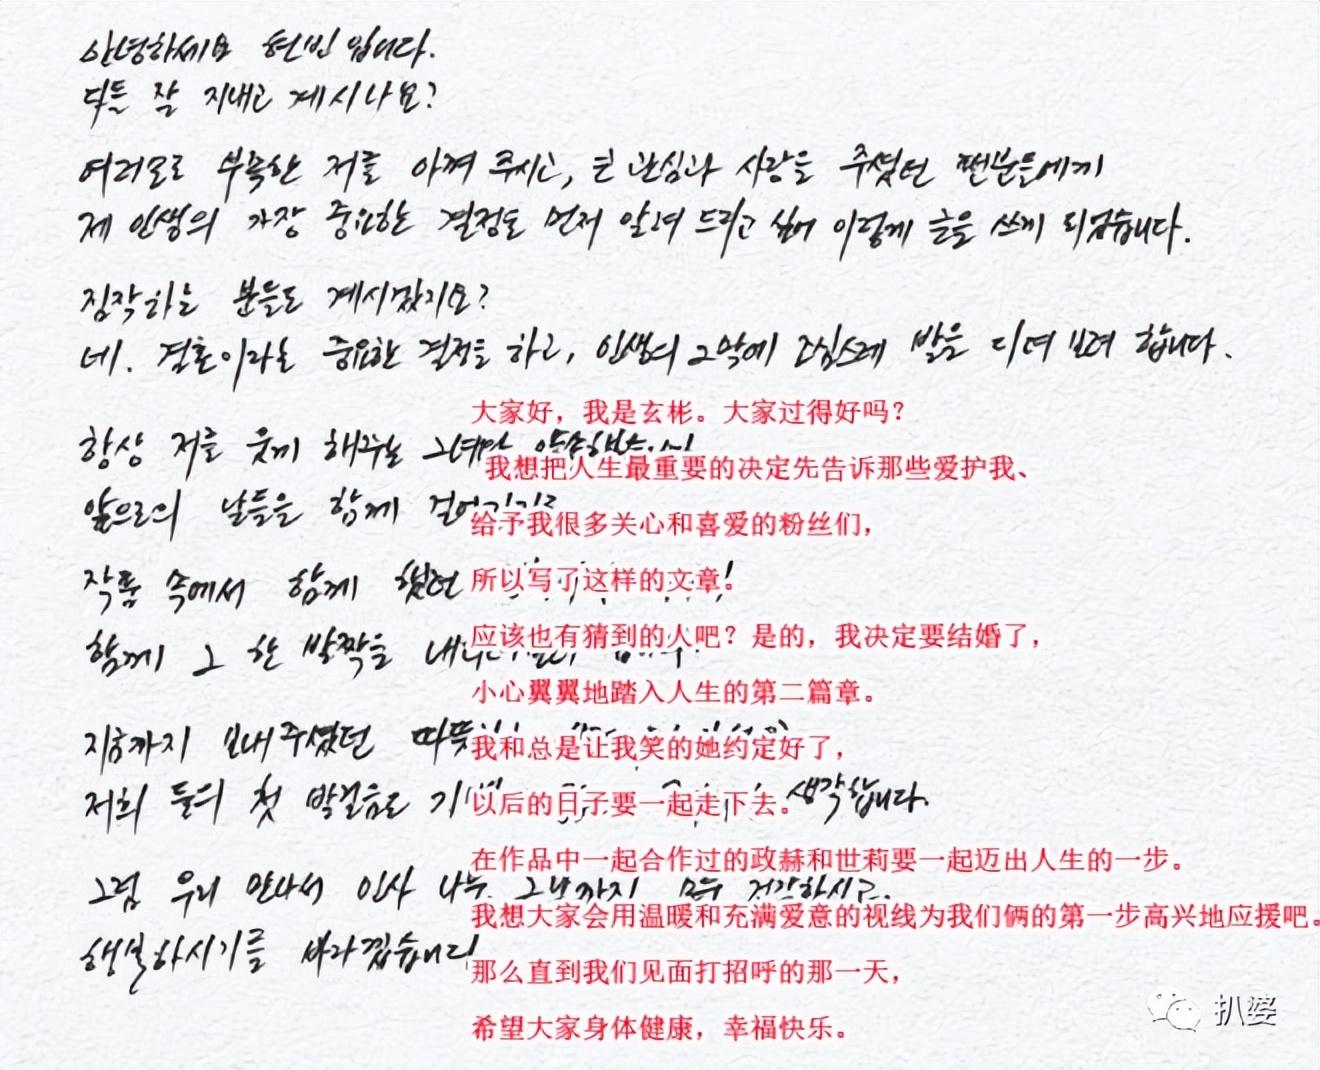 안녕하세요 현빈입니다.
다들 잘 지내고 계시나요?
여러모로 부족한 저를 아껴 주시고, 큰 관심과 사랑을 주셨던 팬분들에게
제 인생의 가장 중요한 결정을 먼저 알려 드리고 싶어 이렇게 글을 쓰게 되었습니다.
짐작하는 분들도 계시겠지요?
네. 결혼이라는 중요한 결정을 하고, 인생의 2막에 조심스레 발을 디뎌 보려 합니다.
大家好，我是玄彬。大家过得好吗？
항상 저를 웃게 해주는 그녀와
我想把人生最重要的决定先告诉那些爱护我、
앞으로의 날들을 함께
给予我很多关心和喜爱的粉丝们，
작품 속에서 함께 했던
所以写了这样的文章！
함께 그 한 발짝을
应该也有猜到的人吧？是的，我决定要结婚了，
小心翼翼地踏入人生的第二篇章。
지금까지 보내주셨던
我和总是让我笑的她约定好了，
저희 둘의 첫 발걸음도 생각합니다.
以后的日子要一起走下去。
在作品中一起合作过的政赫和世莉要一起迈出人生的一步。
그럼 우리 만나서 인사 그날까지 모두 건강하시고.
我想大家会用温暖和充满爱意的视线为我们俩的第一步高兴地应援吧。
행복하시기를 바라겠습니다
那么直到我们见面打招呼的那一天，
希望大家身体健康，幸福快乐。
扒婆